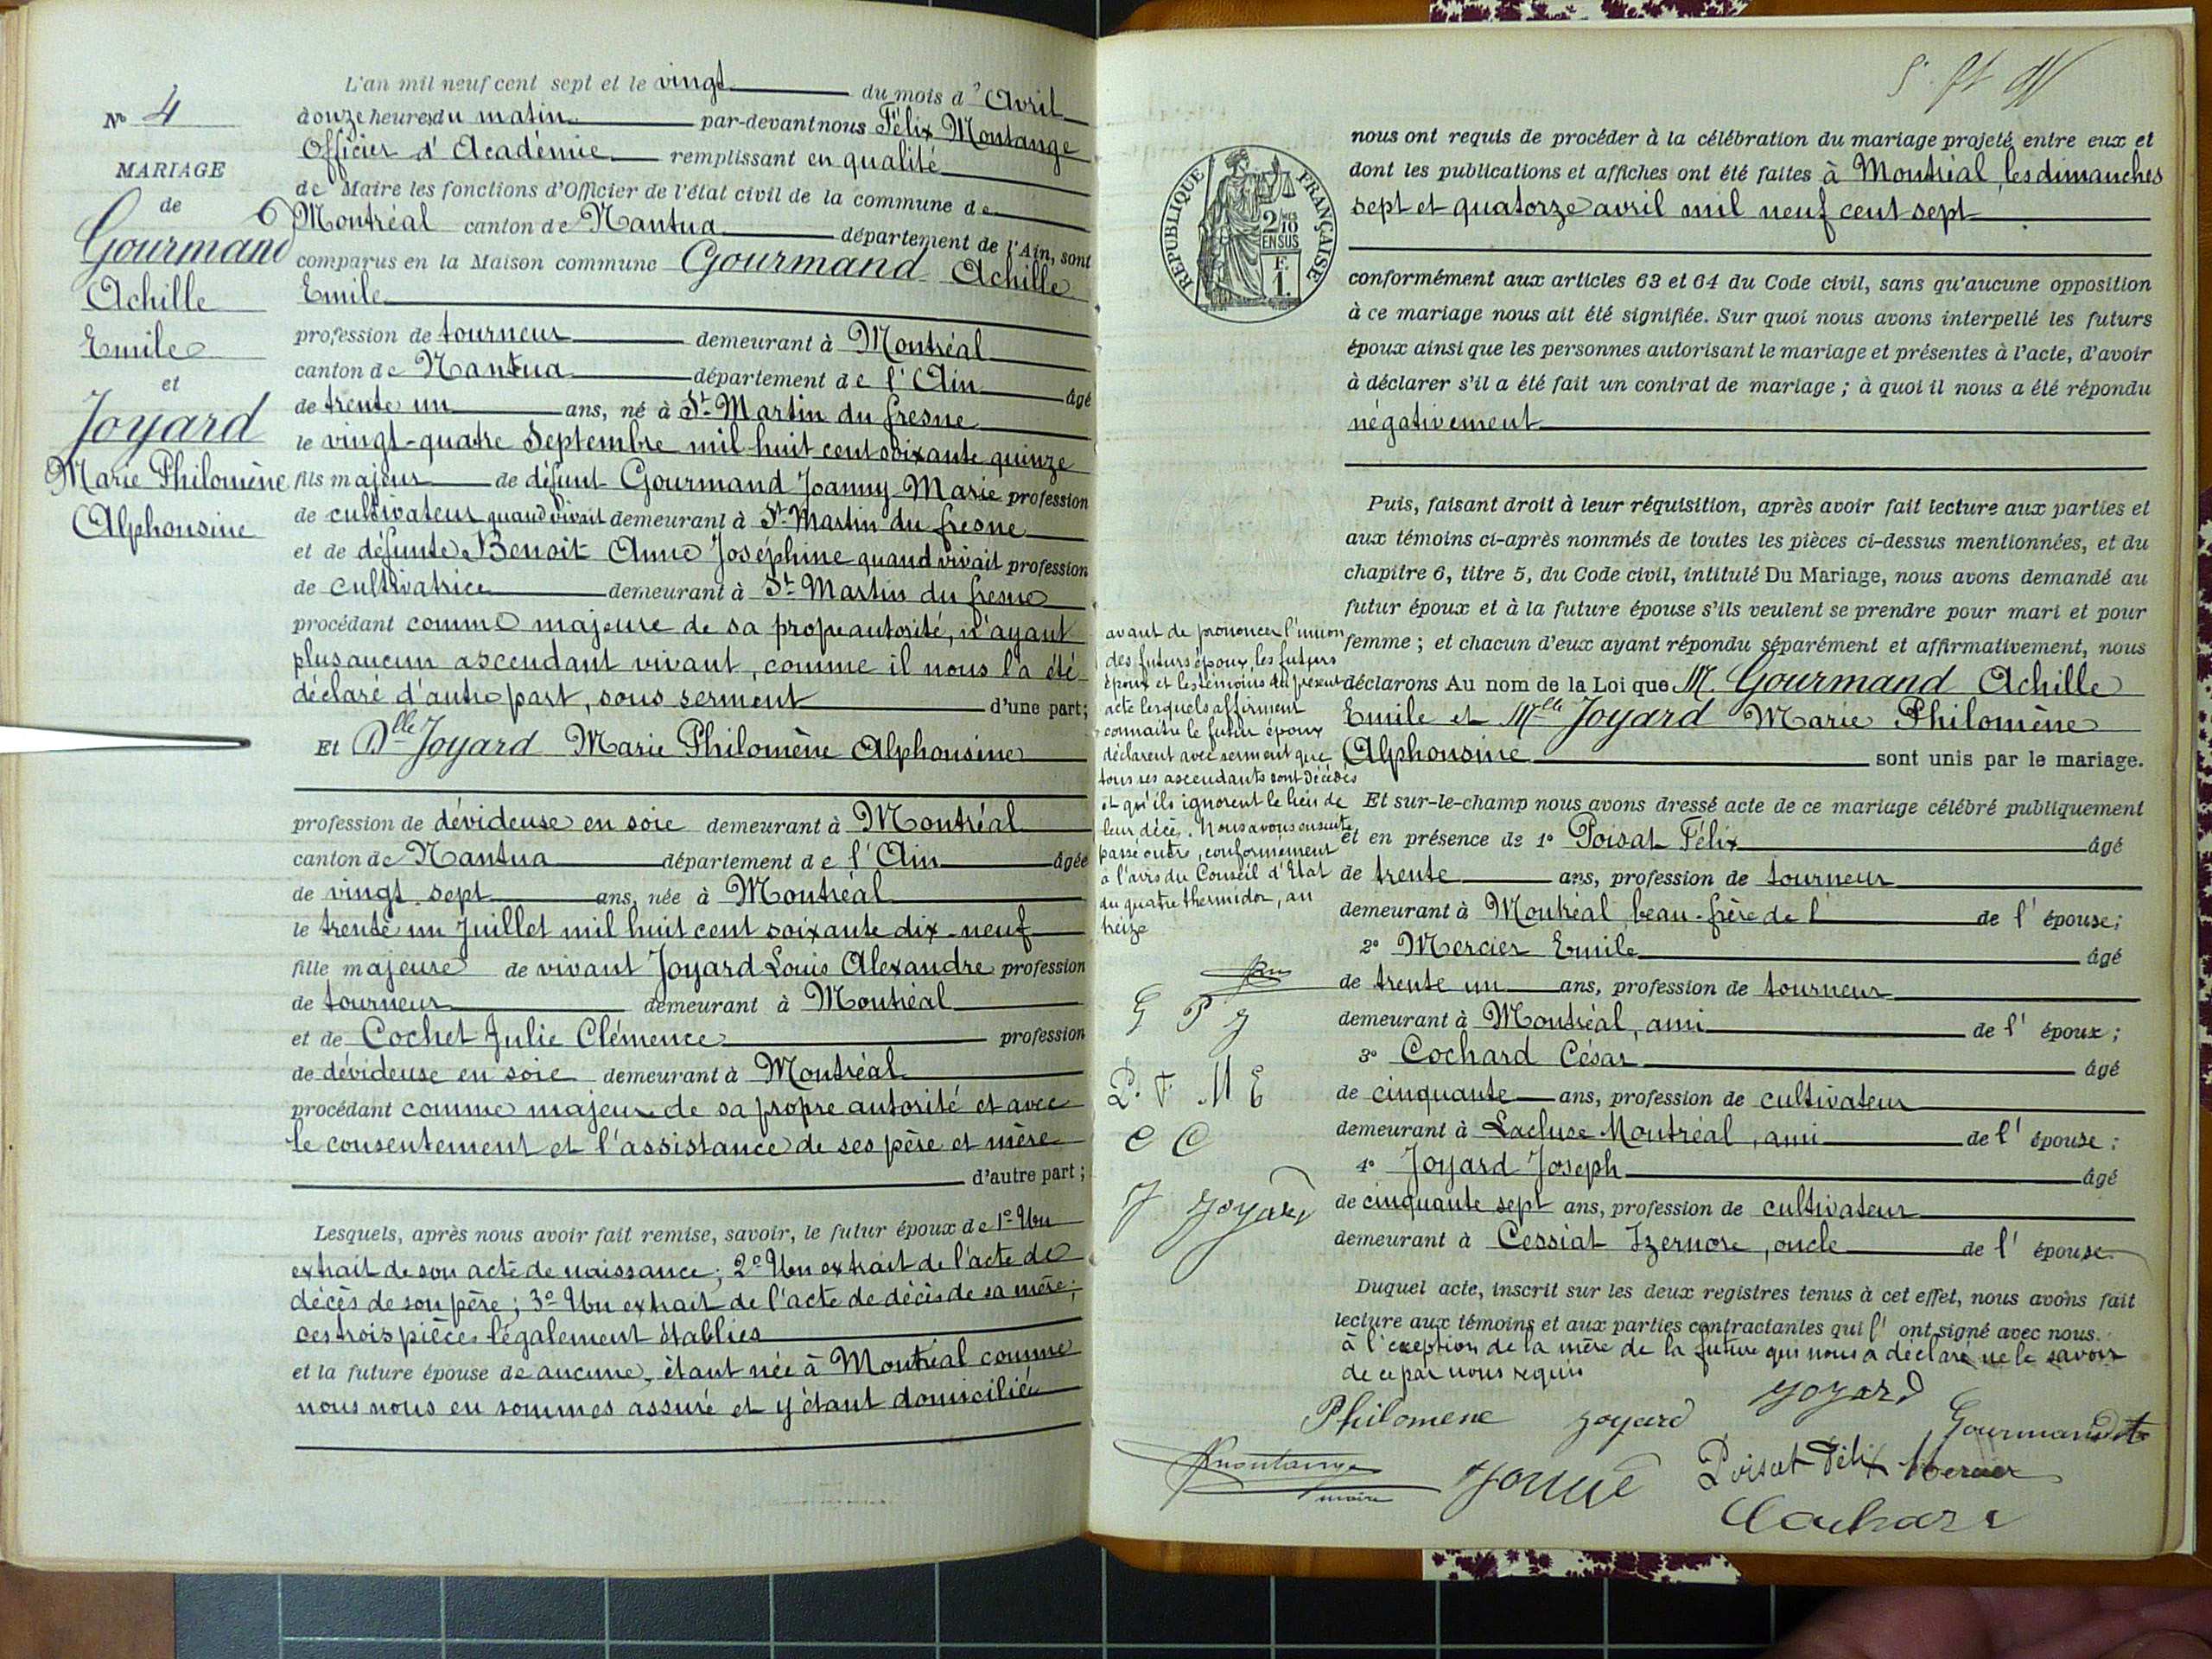 N° 4
MARIAGE
de
Gourmand
Achille
Emile
et
Joyard
Marie Philomène
Alphonsine
L'an mil neuf cent sept et le vingt du mois d'Avril
à onze heures du matin par-devant nous Félix Montange
Officier d'Académie remplissant en qualité
de Maire les fonctions d'Officier de l'état civil de la commune de
Montréal canton de Nantua département de l'Ain, sont
comparus en la Maison commune Gourmand Achille
Emile
profession de tourneur demeurant à Montréal
canton de Nantua département de l'Ain âgé
de trente un ans, né à St Martin du fresne
le vingt-quatre Septembre mil huit cent soixante quinze
fils majeur de défunt Gourmand Joanny Marie profession
de cultivateur quand vivait demeurant à St Martin du fresne
et de défunte Benoit Anne Joséphine quand vivait profession
de cultivatrice demeurant à St Martin du fresne
procédant comme majeure de sa propre autorité, n'ayant
plus aucun ascendant vivant, comme il nous l'a été
déclaré d'autre part, sous serment d'une part;
Et Dlle Joyard Marie Philomène Alphonsine
profession de dévideuse en soie demeurant à Montréal
canton de Nantua département de l'Ain âgée
de vingt sept ans, née à Montréal
le trente un Juillet mil huit cent soixante dix-neuf
fille majeure de vivant Joyard Louis Alexandre profession
de tourneur demeurant à Montréal
et de Cochet Julie Clémence profession
de dévideuse en soie demeurant à Montréal
procédant comme majeure de sa propre autorité et avec
le consentement et l'assistance de ses père et mère
d'autre part;
Lesquels, après nous avoir fait remise, savoir, le futur époux de 1° Un
extrait de son acte de naissance; 2° Un extrait de l'acte de
décès de son père; 3° Un extrait de l'acte de décès de sa mère;
ces trois pièces légalement établies
et la future épouse de aucune, étant née à Montréal comme
nous nous en sommes assuré et y étant domiciliée
RÉPUBLIQUE FRANÇAISE
2/10 EN SUS
F.
1.
nous ont requis de procéder à la célébration du mariage projeté entre eux et
dont les publications et affiches ont été faites à Montréal, les dimanches
sept et quatorze avril mil neuf cent sept
conformément aux articles 63 et 64 du Code civil, sans qu'aucune opposition
à ce mariage nous ait été signifiée. Sur quoi nous avons interpellé les futurs
époux ainsi que les personnes autorisant le mariage et présentes à l'acte, d'avoir
à déclarer s'il a été fait un contrat de mariage; à quoi il nous a été répondu
négativement
Puis, faisant droit à leur réquisition, après avoir fait lecture aux parties et
aux témoins ci-après nommés de toutes les pièces ci-dessus mentionnées, et du
chapitre 6, titre 5, du Code civil, intitulé Du Mariage, nous avons demandé au
futur époux et à la future épouse s'ils veulent se prendre pour mari et pour
femme; et chacun d'eux ayant répondu séparément et affirmativement, nous
déclarons Au nom de la Loi que M. Gourmand Achille
Emile et Mlle Joyard Marie Philomène
Alphonsine sont unis par le mariage.
Et sur-le-champ nous avons dressé acte de ce mariage célébré publiquement
et en présence de 1° Poisat Félix âgé
de trente ans, profession de tourneur
demeurant à Montréal, beau-frère de l' de l'épouse;
2° Mercier Emile âgé
de trente un ans, profession de tourneur
demeurant à Montréal, ami de l'époux;
3° Cochard César âgé
de cinquante ans, profession de cultivateur
demeurant à Lacluse Montréal, ami de l'épouse;
4° Joyard Joseph âgé
de cinquante sept ans, profession de cultivateur
demeurant à Cessiat Izernore, oncle de l'épouse.
Duquel acte, inscrit sur les deux registres tenus à cet effet, nous avons fait
lecture aux témoins et aux parties contractantes qui l'ont signé avec nous.
à l'exception de la mère de la future qui nous a déclaré ne le savoir
de ce par nous requis
avant de prononcer l'union
des futurs époux, les futurs
époux et les témoins du présent
acte lesquels affirment
connaitre le futur époux
déclarent avec serment que
tous ses ascendants sont décédés
et qu'ils ignorent le lieu de
leur décès. Nous avons ensuite
passé outre, conformément
à l'avis du Conseil d'Etat
du quatre thermidor, an
treize
G P J
P. F M E
C C
J Joyard
Philomene Joyard Joyard
Gourmand
Montange
maire
Poisat Félix Mercier
Cochard